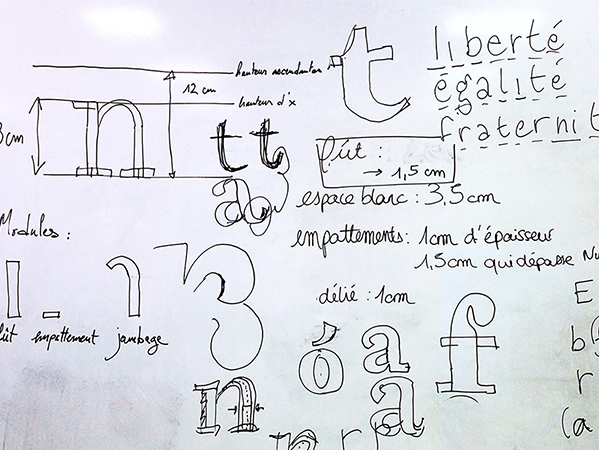 hauteur ascendantes
12 cm
hauteur d'x
8cm
n
t t
a
t
liberté
égalité
fraternit
fût :
→ 1,5 cm
espace blanc : 3,5 cm
empattements : 1cm d'épaisseur
1,5cm qui dépasse
délié : 1cm
Modules :
fût empattement jambage
ó a f
n a
n r
E
b
r
(a